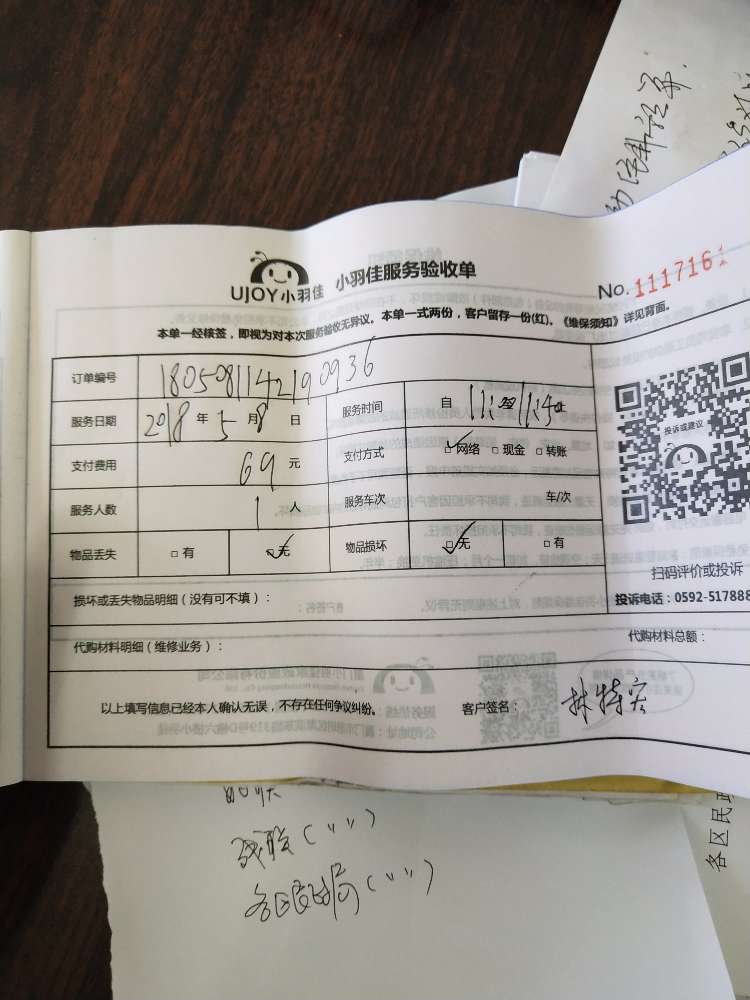 UJOY小羽佳 小羽佳服务验收单
No.1117161
本单一经核签，即视为对本次服务验收无异议。本单一式两份，客户留存一份(红)。《维保须知》详见背面。
订单编号 180508114219 0936
服务日期 2018 年 5 月 8 日 服务时间 自
支付费用 69 元 支付方式 网络 现金 转账
服务人数 1 人 服务车次 车/次
物品丢失 有 无 物品损坏 无 有
投诉或建议
UJOY
扫码评价或投诉
损坏或丢失物品明细（没有可不填）：
投诉电话：0592-517888
代购材料明细（维修业务）：
代购材料总额：
以上填写信息已经本人确认无误，不存在任何争议纠纷。 客户签名： 林特
各区民政